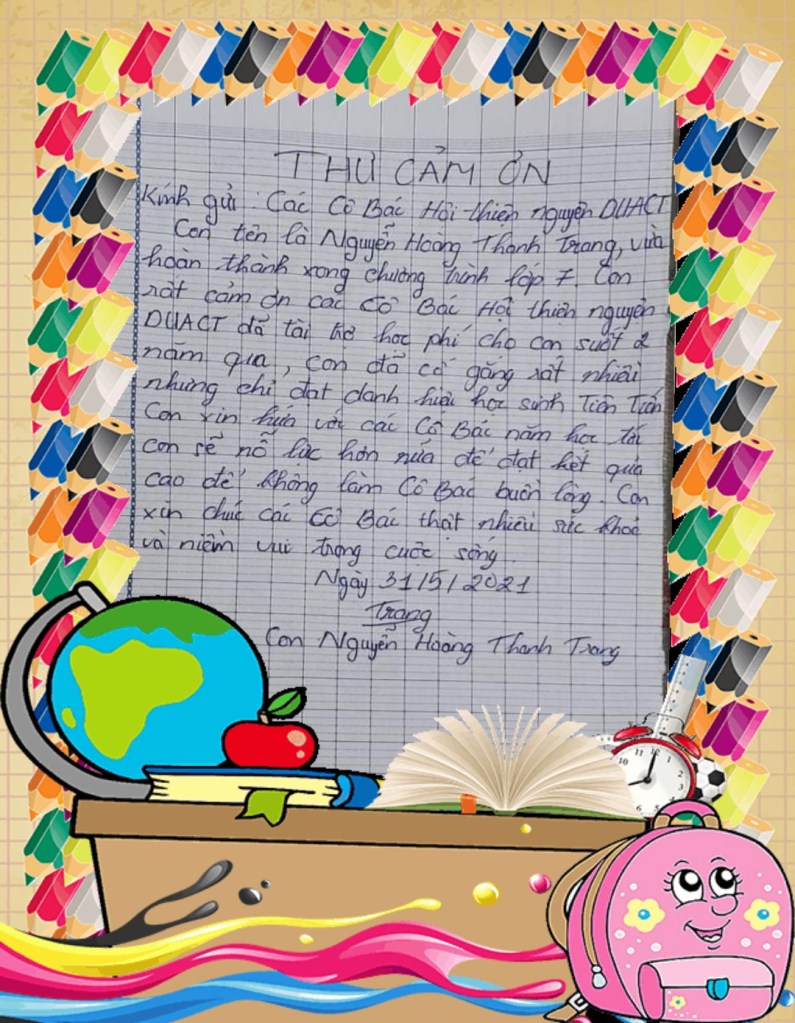 THƯ CẢM ƠN
Kính gửi : Các Cô Bác Hội thiện nguyện DUACT
Con tên là Nguyễn Hoàng Thanh Trang, vừa
hoàn thành xong chương trình lớp 7. Con
rất cảm ơn các Cô Bác Hội thiện nguyện
DUACT đã tài trợ học phí cho con suốt 2
năm qua, con đã cố gắng rất nhiều
nhưng chỉ đạt danh hiệu học sinh Tiên Tiến
Con xin hứa với các Cô Bác năm học tới
con sẽ nỗ lực hơn nữa để đạt kết quả
cao để không làm Cô Bác buồn lòng. Con
xin chúc các Cô Bác thật nhiều sức khoẻ
và niềm vui trong cuộc sống.
Ngày 31/5/2021
Trang
Con Nguyễn Hoàng Thanh Trang